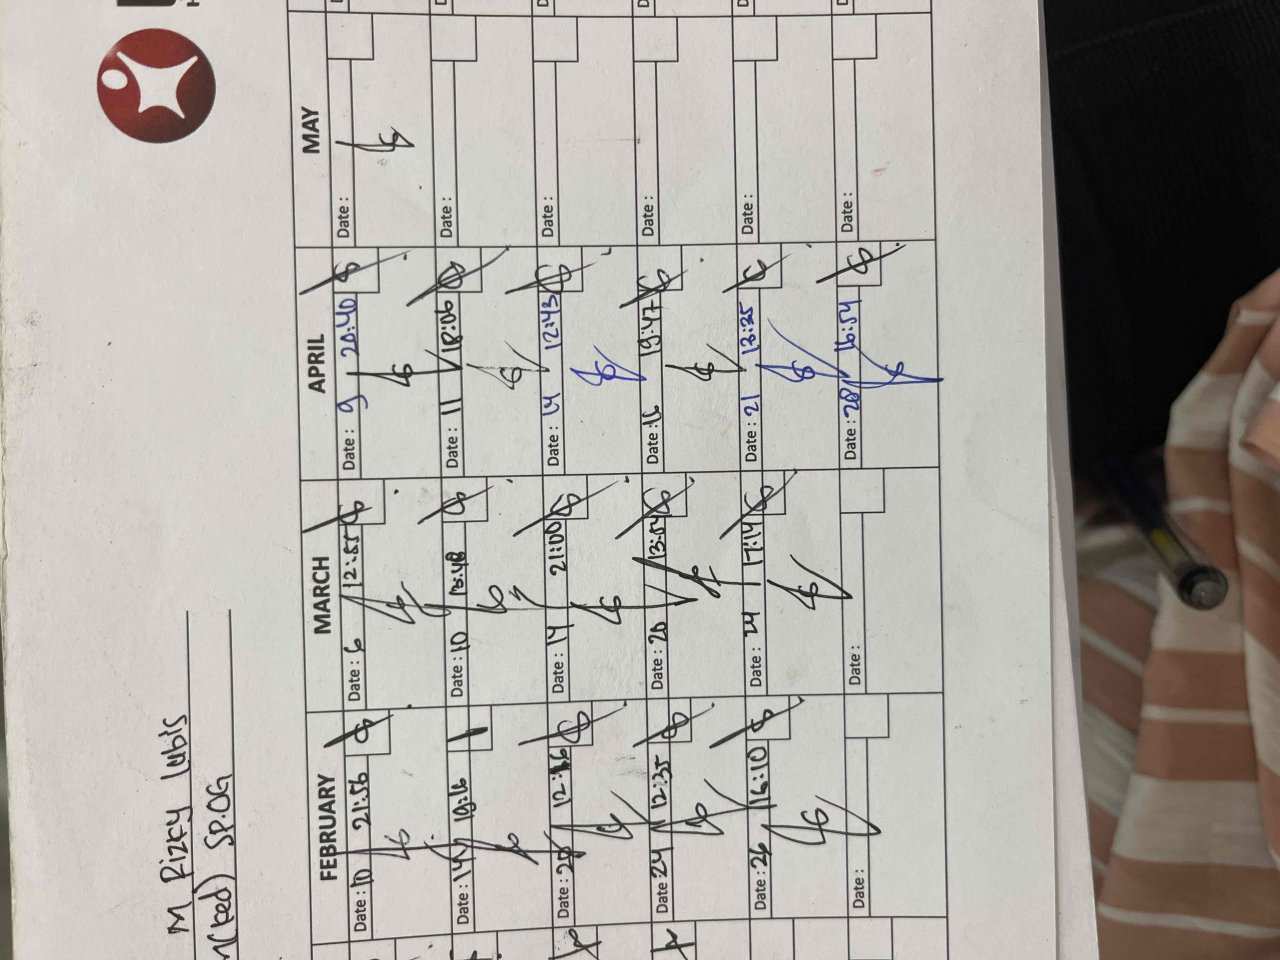 M Rizky Lubis
(ked) SP.OG
FEBRUARY MARCH APRIL MAY
Date : 10 21:56 Date : 6 12:55 Date : 9 20:40 Date :
Date : 14 19:16 Date : 10 13:48 Date : 11 18:06 Date :
Date : 20 12:16 Date : 14 21:00 Date : 14 12:43 Date :
Date : 24 12:35 Date : 20 13:54 Date : 16 19:47 Date :
Date : 26 16:10 Date : 24 17:14 Date : 21 13:35 Date :
Date : Date : Date : 28 16:54 Date :